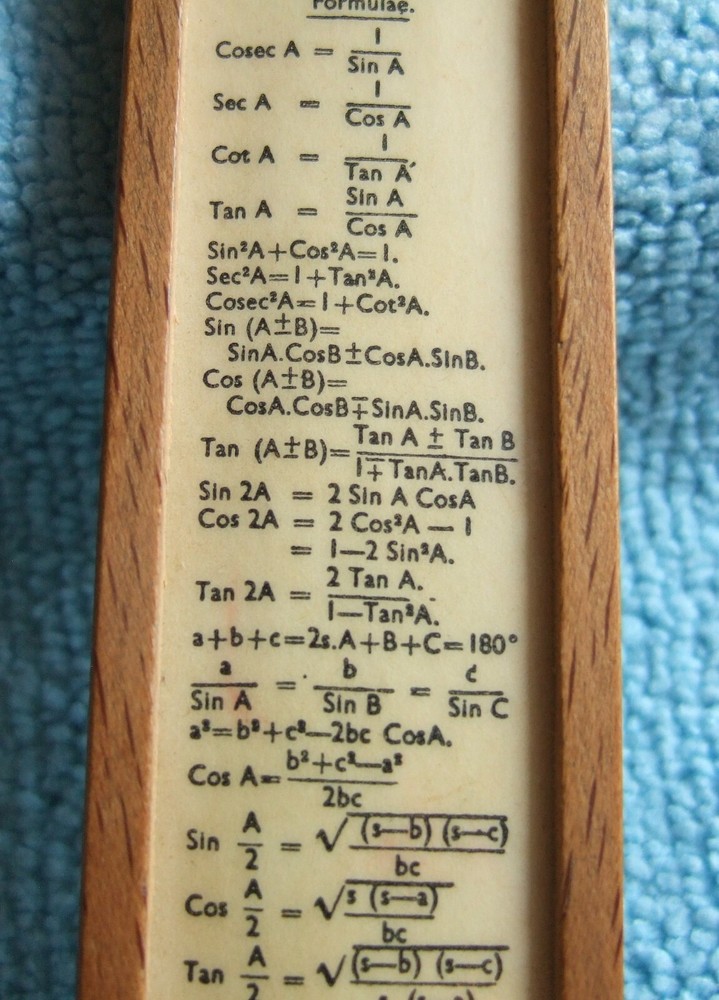 Formulae.
Cosec A = 1/Sin A
Sec A = 1/Cos A
Cot A = 1/Tan A
Tan A = Sin A/Cos A
Sin²A+Cos²A=1.
Sec²A=1+Tan²A.
Cosec²A=1+Cot²A.
Sin (A±B)=
SinA.CosB±CosA.SinB.
Cos (A±B)=
CosA.CosB∓SinA.SinB.
Tan (A±B)=Tan A ± Tan B/1∓TanA.TanB.
Sin 2A = 2 Sin A CosA
Cos 2A = 2 Cos²A — 1
= 1—2 Sin²A.
Tan 2A = 2 Tan A./1—Tan²A.
a+b+c=2s.A+B+C=180°
a/Sin A = b/Sin B = c/Sin C
a²=b²+c²—2bc CosA.
Cos A=b²+c²—a²/2bc
Sin A/2 = √(s—b) (s—c)/bc
Cos A/2 = √s (s—a)/bc
Tan A/2 = √(s—b) (s—c)/s (s—a)